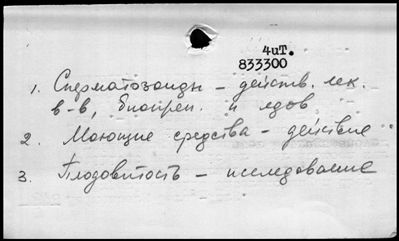 4иТ.
833300
1. Сперматозоиды - действ. лек.
в-в, биопреп. и ядов
2. Моющие средства - действие
3. Плодовитость - исследование